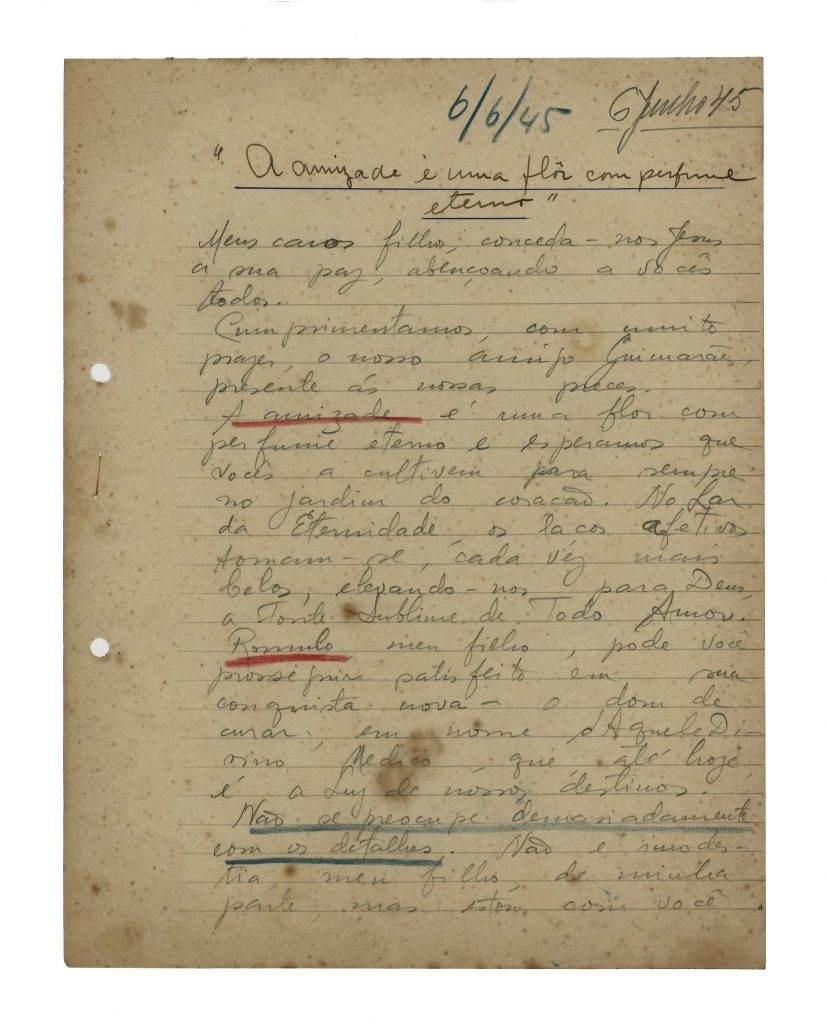 6/6/45 6 Junho 45
" A amizade é uma flôr com perfume
eterno "
Meus caros filho, conceda-nos Jesus
a sua paz, abençoando a vocês
todos.
Cumprimentamos, com muito
prazer, o nosso amigo Guimarães,
presente ás nossas preces.
A amizade é uma flor com
perfume eterno e esperamos que
vocês a cultivem para sempre
no jardim do coracão. No Lar
da Eternidade os lacos afetivos
tornam-se, cada véz mais
belos, elevando-nos para Deus,
a Fonte Sublime de Todo Amor.
Romulo, meu filho, pode você
prosseguir satisfeito em sua
conquista nova - o dom de
curar, em nome d'Aquele Di-
vino Medico, que até hoje,
é a Luz de nossos destinos.
Não se preocupe demasiadamente
com os detalhes. Não é imodes-
tia, meu filho, de minha
parte, mas estou com você.